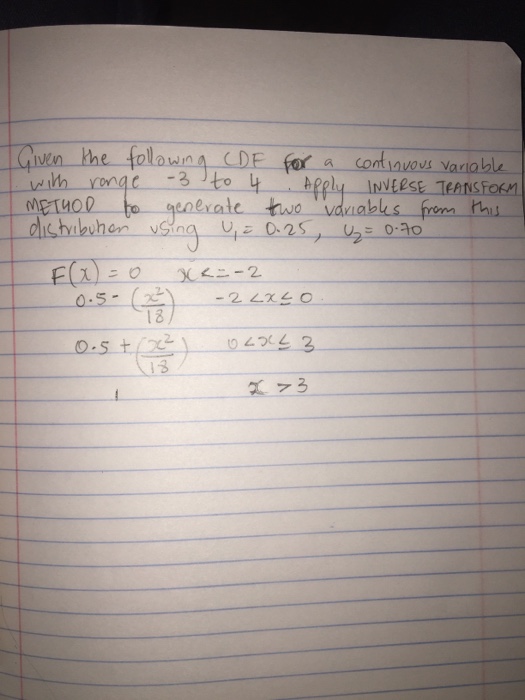 Given the following CDF for a continuous variable
with range -3 to 4. Apply INVERSE TRANSFORM
METHOD to generate two variables from this
distribution using U₁ = 0.25, U₂ = 0.70
F(x) = 0 x <= -2
0.5 - (x²/18) -2 < x ≤ 0
0.5 + (x²/18) 0 < x ≤ 3
1 x > 3